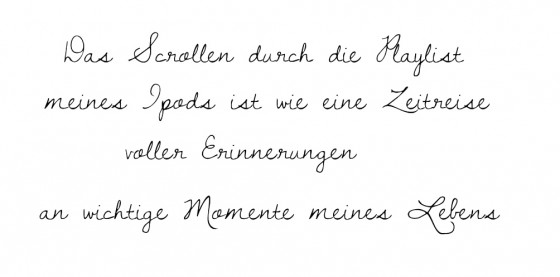 Das Scrollen durch die Playlist
meines Ipods ist wie eine Zeitreise
voller Erinnerungen
an wichtige Momente meines Lebens